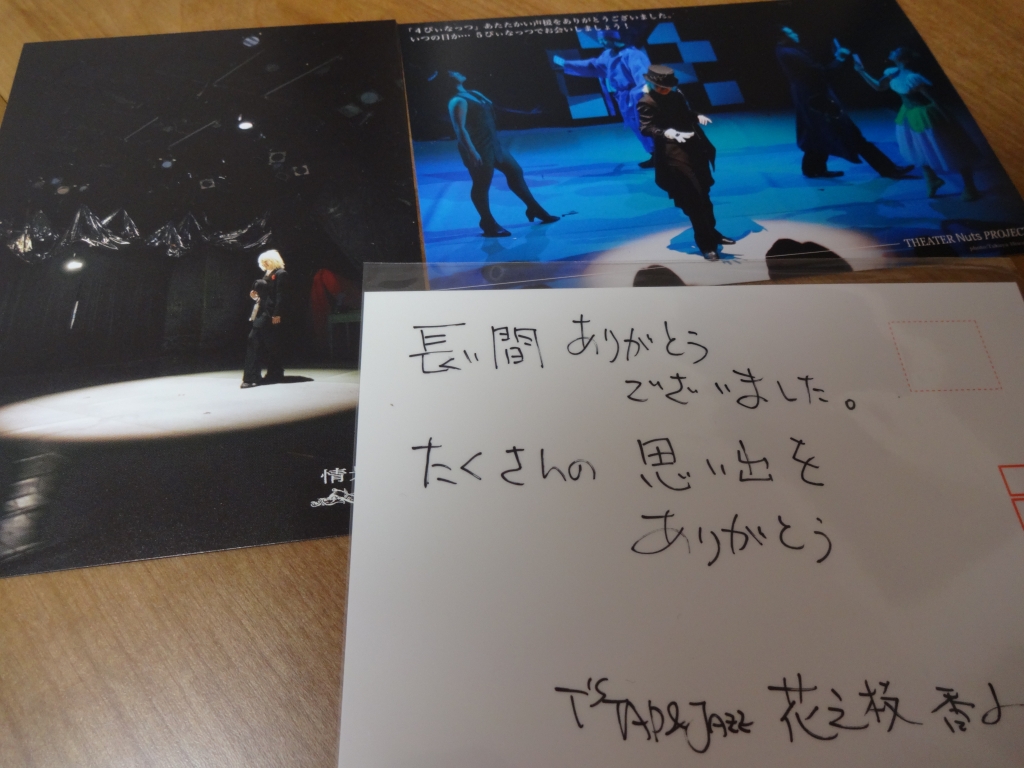 「4ぴぃなっつ」あたたかい声援をありがとうございました。
いつの日か… 5ぴぃなっつでお会いしましょう！
THEATER Nuts PROJECT
情
長い間 ありがとう
ございました。
たくさんの 思い出を
ありがとう
T'S TAP&JAZZ 花之枝 香よ